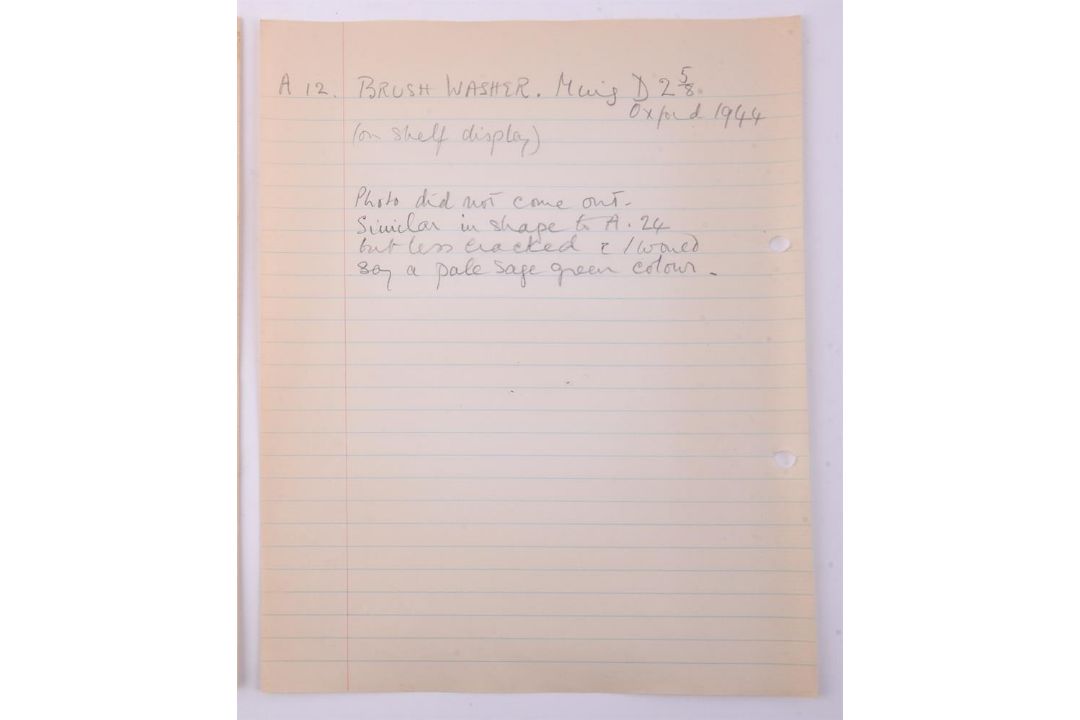 A 12. BRUSH WASHER. Ming D 2 5/8.
Oxford 1944
(on shelf display)
Photo did not come out.
Similar in shape to A.24
but less cracked & I would
say a pale sage green colour.